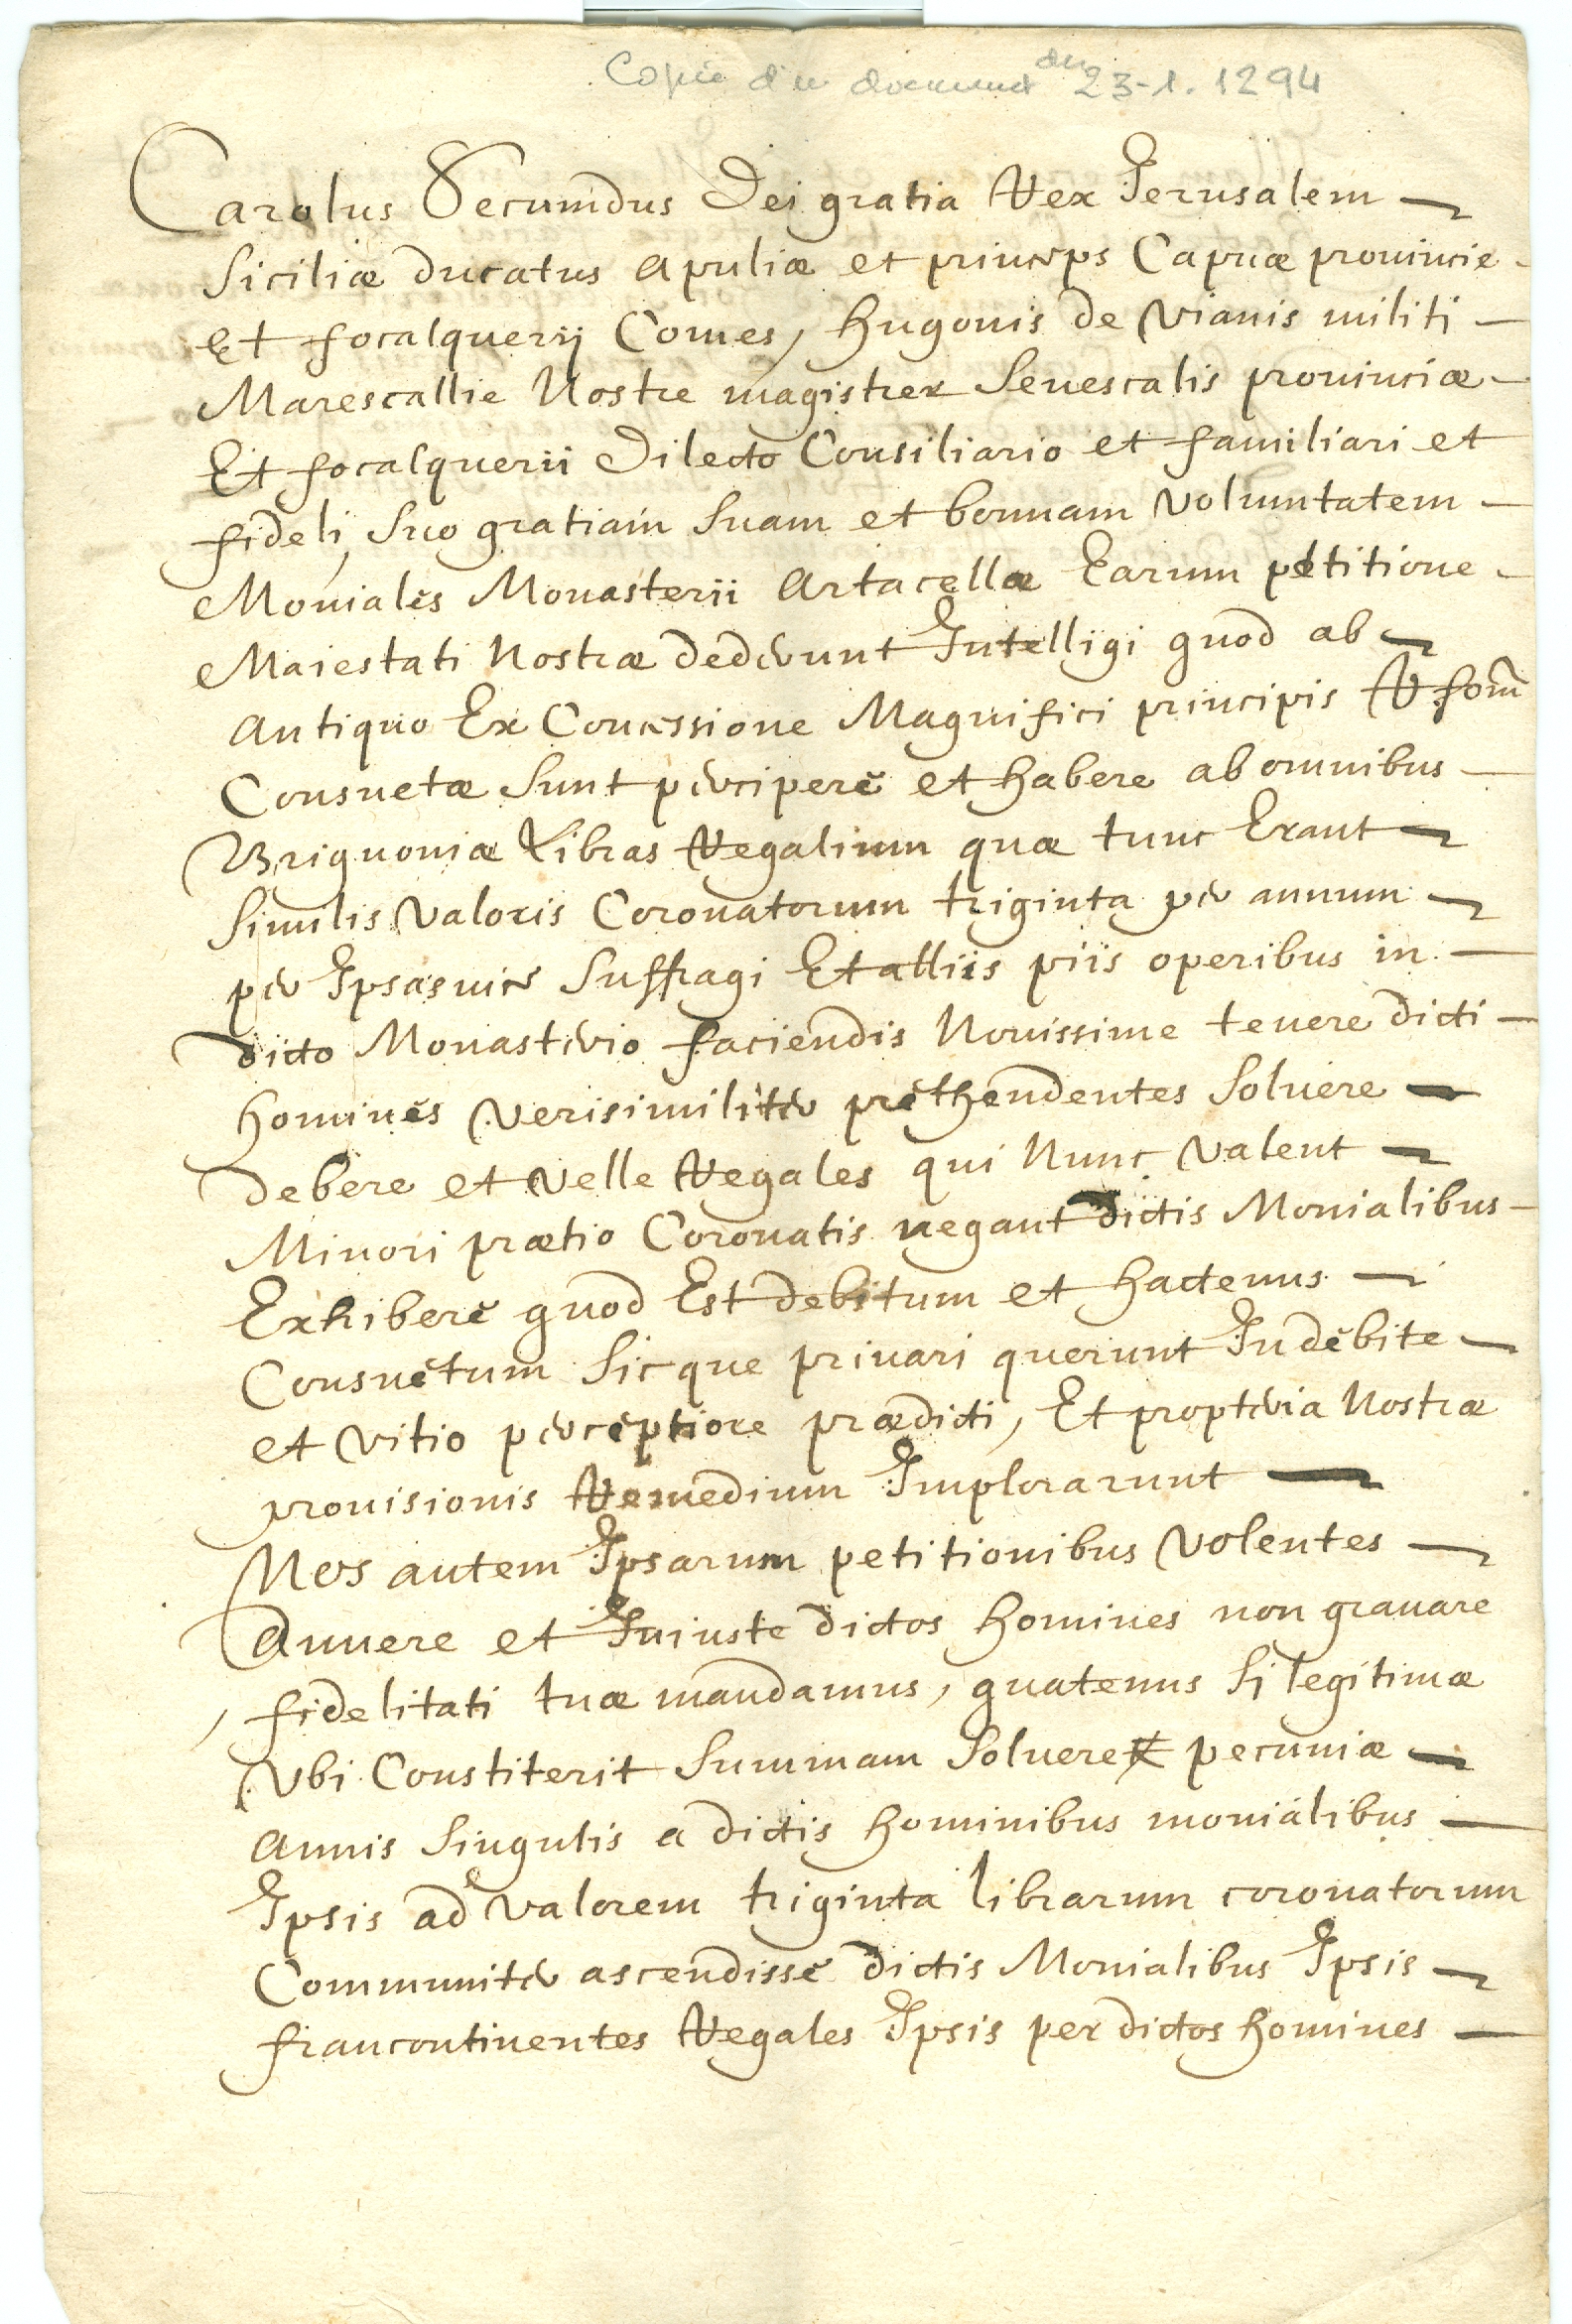 Copie d'un document du 23-1.1294
Carolus Secundus Dei gratia Rex Jerusalem
Siciliæ ducatus Apuliæ et princeps Capuæ provincie
Et focalquerij Comes, hugonis de vianis militi
Marescallie Nostre magister Senescalis provinciæ
Et focalquerii Dilecto Consiliario et familiari et
fideli, suo gratiam suam et bonnam voluntatem
Moniales Monasterii Artacellæ Earum petitione
Maiestati Nostræ dederunt Intelligi quod ab
Antiquo Ex Concessione Magnifici principis
Consuetæ sunt percipere et habere ab omnibus
Brignoniæ Libras Regalium quæ tunc Erant
Similis valoris Coronatorum triginta per annum
per Ipsas Suffragi Et alliis piis operibus in
dicto Monasterio faciendis Novissime tenere dicti
homines verisimiliter prethendentes Solvere
debere et velle Regales qui Nunc valent
Minori prætio Coronatis negant dictis Monialibus
Exhibere quod Est debitum et hactenus
Consuetum sicque privari querunt Indebite
et vitio perceptiore prædicti, Et propteria Nostræ
provisionis Remedium Implorarunt
Nos autem Ipsarum petitionibus volentes
Annuere et Iniuste dictos homines non gravare
fidelitati tuæ mandamus, quatenus si legitimæ
Ubi Constiterit summam solvere pecuniæ
Annis singulis a dictis hominibus monialibus
Ipsis ad valorem triginta librarum coronatorum
Communiter ascendisse dictis Monialibus Ipsis
francontinentes Regales Ipsis per dictos homines